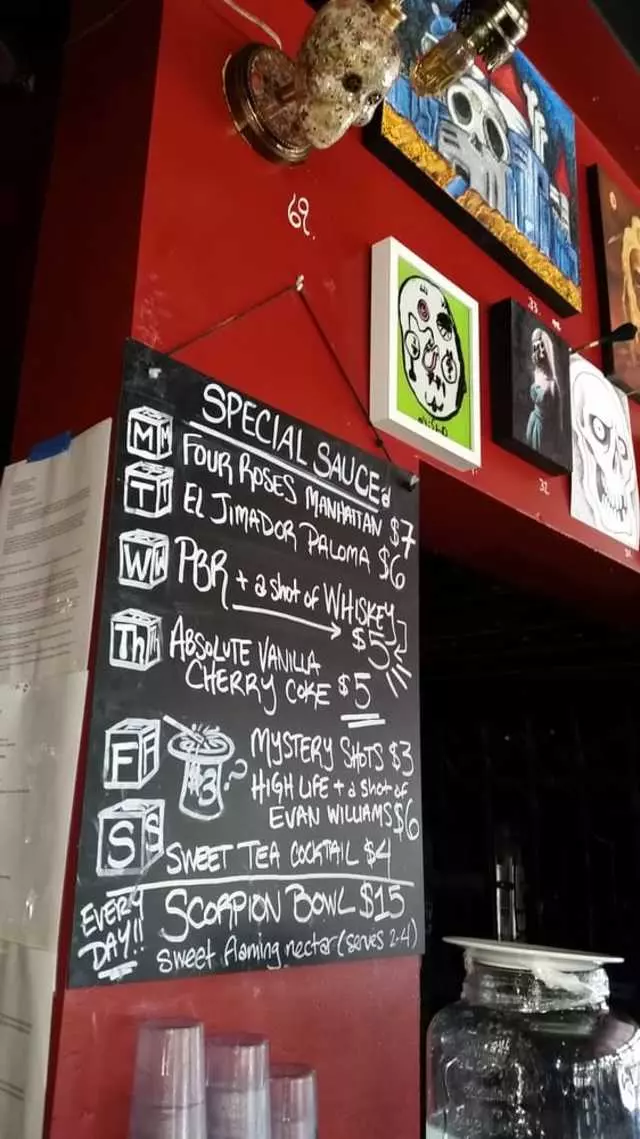 69.
SPECIAL SAUCE
M M FOUR ROSES MANHATTAN $7
T T EL JIMADOR PALOMA $6
W W PBR + a shot of WHISKEY
$5
Th Th ABSOLUTE VANILLA
CHERRY COKE $5
F F $3 ? MYSTERY SHOTS $3
HIGH LIFE + a shot of
EVAN WILLIAMS $6
S S SWEET TEA COCKTAIL $4
EVERY
DAY!!
SCORPION BOWL $15
sweet flaming nectar (serves 2-4)